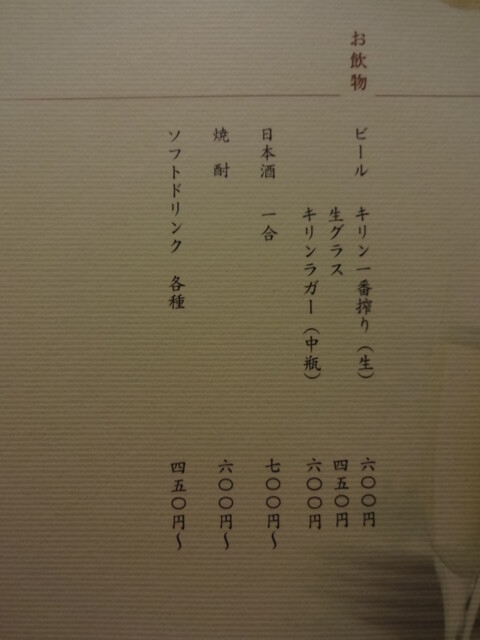 お飲物
ビール キリン一番搾り(生) 六〇〇円
生グラス 四五〇円
キリンラガー(中瓶) 六〇〇円
日本酒 一合 七〇〇円～
焼酎 六〇〇円～
ソフトドリンク 各種 四五〇円～